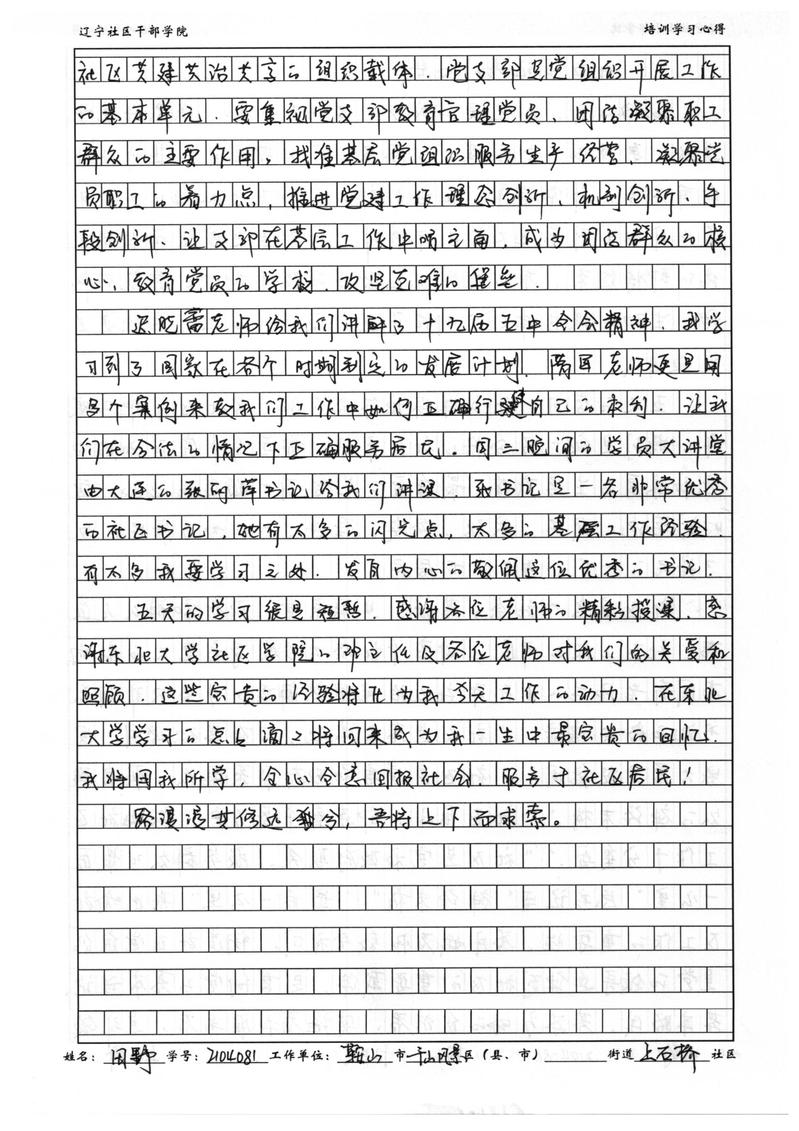 辽宁社区干部学院 培训学习心得
社区共建共治共享的组织载体．党支部是党组织开展工作
的基本单元．要集视党支部教育管理党员、团结凝聚职工
群众的主要作用，找准基层党组织服务生产经营、凝聚党
员职工的着力点，推进党建工作理念创新、机制创新、手
段创新．让支部在基层工作中唱主角，成为团结群众的核
心、教育党员的学校、攻坚克难的堡垒．
迟晓蕾老师给我们讲解了十九届五中全会精神．我学
习到了国家在各个时期制定的发展计划．隋军老师更是用
多个案例来教我们工作中如何正确行使自己的权利．让我
们在合法的情况下正确服务居民。周三晚间的学员大讲堂
由大连的张阿萍书记给我们讲课．张书记是一名非常优秀
的社区书记，她有太多的闪光点，太多的基层工作经验．
有太多我要学习之处．发自内心的敬佩这位优秀的书记．
五天的学习很是短暂．感谢各位老师的精彩授课．感
谢东北大学社区学院的邓主任及各位老师对我们的关爱和
照顾．这些宝贵的经验将在为我今天工作的动力．在东北
大学学习的点点滴滴将回来成为我一生中最宝贵的回忆．
我将用我所学，全心全意回报社会．服务于社区居民！
路漫漫其修远兮，吾将上下而求索。
姓名：田野 学号：2104081 工作单位：鞍山 市 千山风景 区（县、市） 街道 上石桥 社区